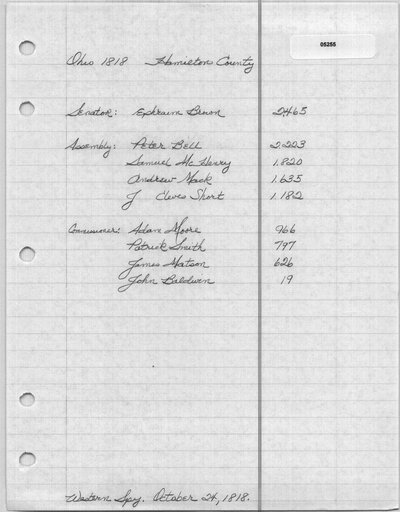 05255
Ohio 1818 Hamilton County
Senator: Ephraim Brown 2465
Assembly: Peter Bell 2223
Samuel McHenry 1,820
Andrew Mack 1.635
J Cleves Short 1.182
Commissioner: Adam Moore 966
Patrick Smith 797
James Matson 626
John Baldwin 19
Western Spy. October 24, 1818.